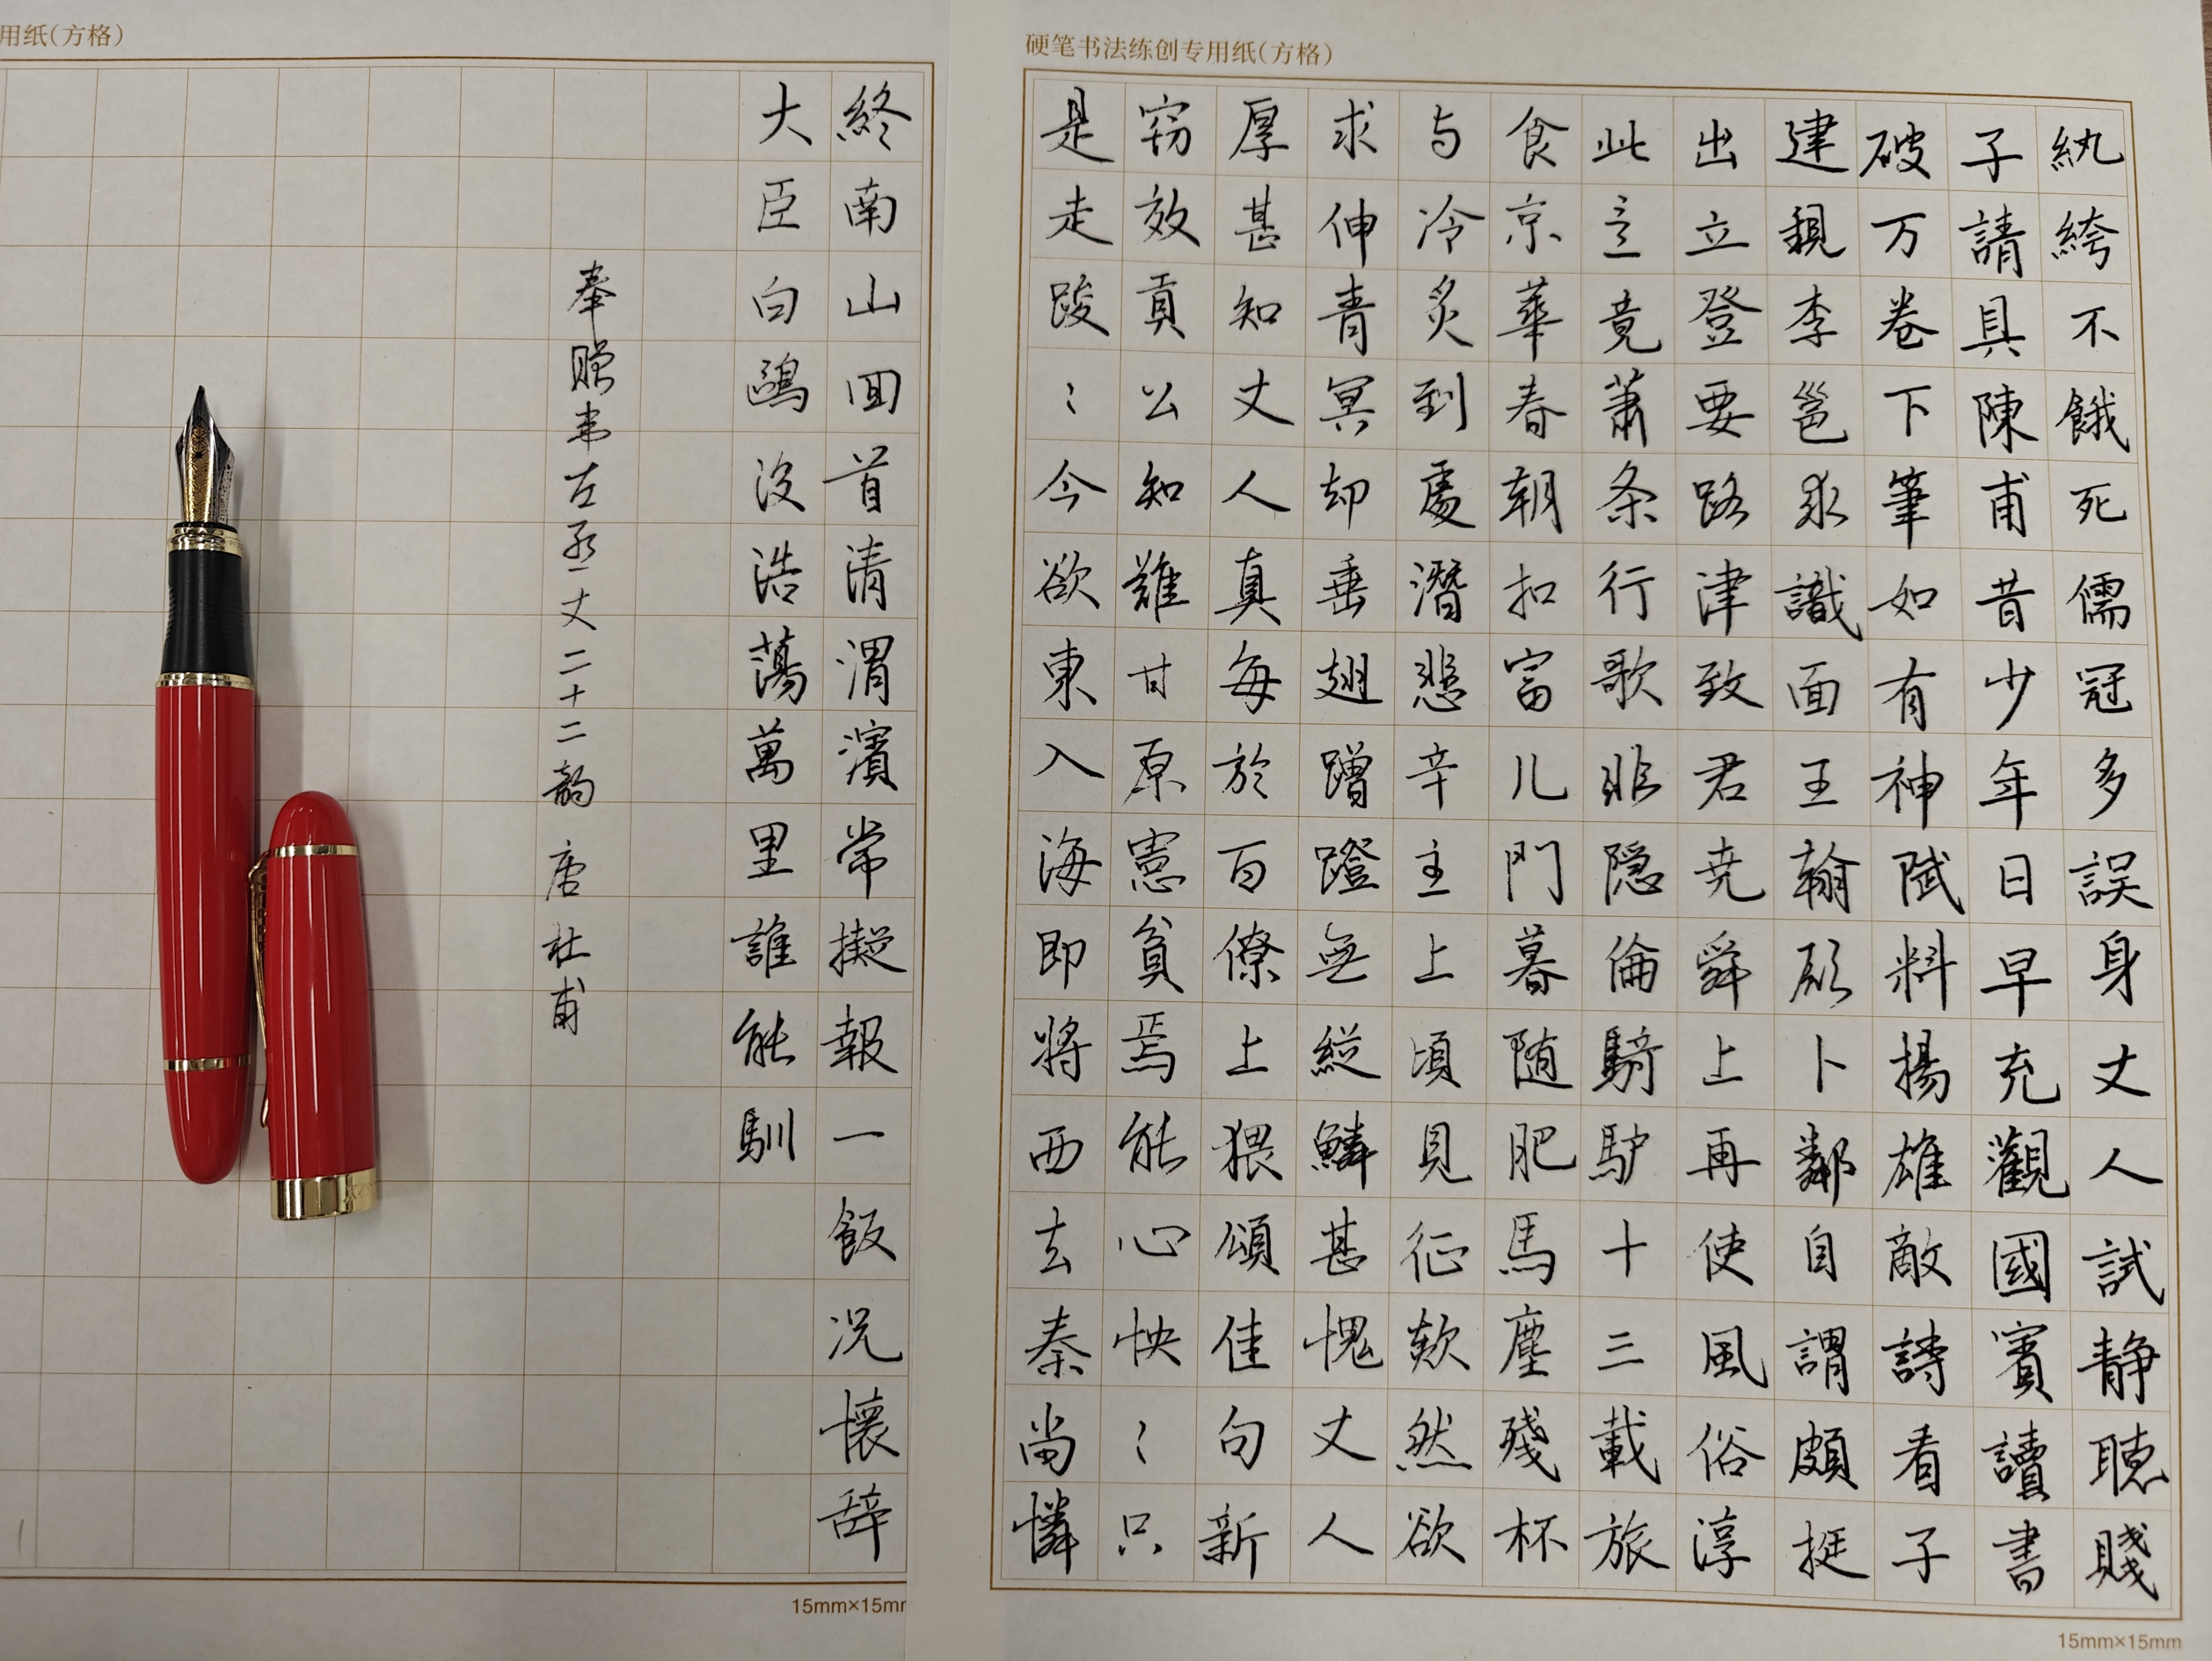 硬笔书法练创专用纸(方格)
紈絝不餓死儒冠多誤身丈人試静聴賤
子請具陳甫昔少年日早充觀國賓讀書
破万卷下筆如有神賦料揚雄敵詩看子
建親李邕求識面王翰願卜鄰自謂頗挺
出立登要路津致君尭舜上再使風俗淳
此意竟蕭条行歌非隐倫騎驴十三載旅
食京華春朝扣富儿門暮随肥馬塵殘杯
与冷炙到處潛悲辛主上頃見征欻然欲
求伸青冥却垂翅蹭蹬無縱鱗甚愧丈人
厚甚知丈人真每於百僚上猥頌佳句新
窃效貢公知難甘原憲貧焉能心怏〻只
是走踆〻今欲東入海即將西去秦尚憐
15mm×15mm
用纸(方格)
終南山回首清渭濱常擬報一飯况懷辞
大臣白鷗没浩蕩萬里誰能馴
奉贈韦左丞丈二十二韵 唐 杜甫
15mm×15mm